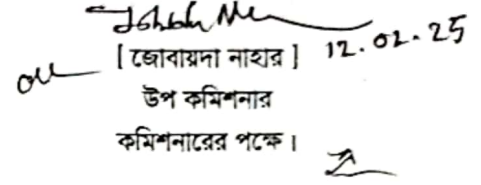 [ জোবায়দা নাহার ] 12.02.25
উপ কমিশনার
কমিশনারের পক্ষে।